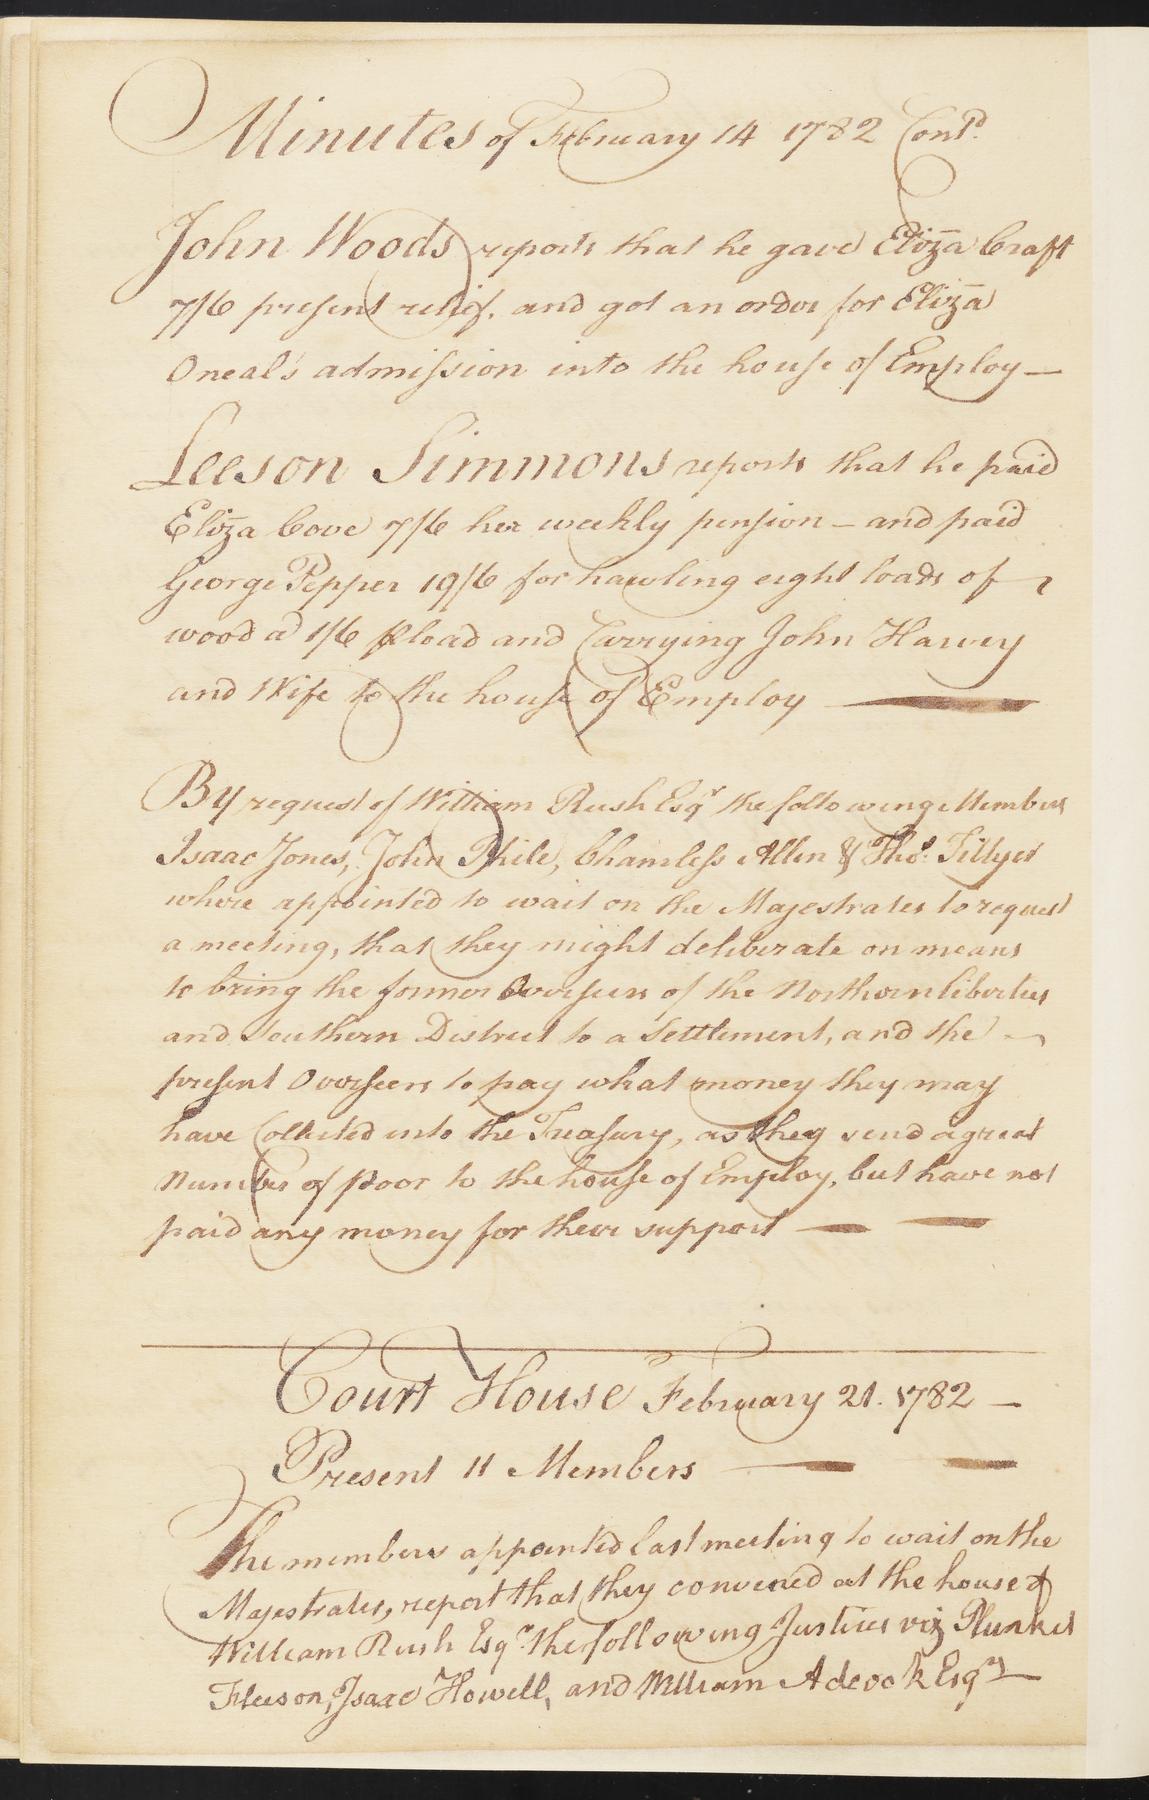 Minutes of February 14 1782 Contd.
John Woods reports that he gave Eliza Craft
7/6 present relief. and got an order for Eliza
Oneal's admission into the house of Employ —
Leeson Simmons reports that he paid
Eliza Cove 7/6 her weekly pension — and paid
George Pepper 19/6 for hawling eight loads of
wood a 1/6 ⅌ load and Carrying John Harvey
and Wife to the house of Employ —
By request of William Rush Esqr the following Members
Isaac Jones, John Phile, Chamless Allen & Thos. Tillyer
where appointed to wait on the Majestrates to request
a meeting, that they might deliberate on means
to bring the former Overseers of the Northern liberties
and Southern District to a Settlement, and the
present Overseers to pay what money they may
have Collected into the Treasury, as they send a great
Number of poor to the house of Employ, but have not
paid any money for their support — —
Court House February 21. 1782 —
Present 11 Members — —
The members appointed last meeting to wait on the
Majestrates, report that they convened at the house of
William Rush Esqr. the following Justices viz Plunket
Fleeson, Isaac Howell, and William Adcock Esqrs —